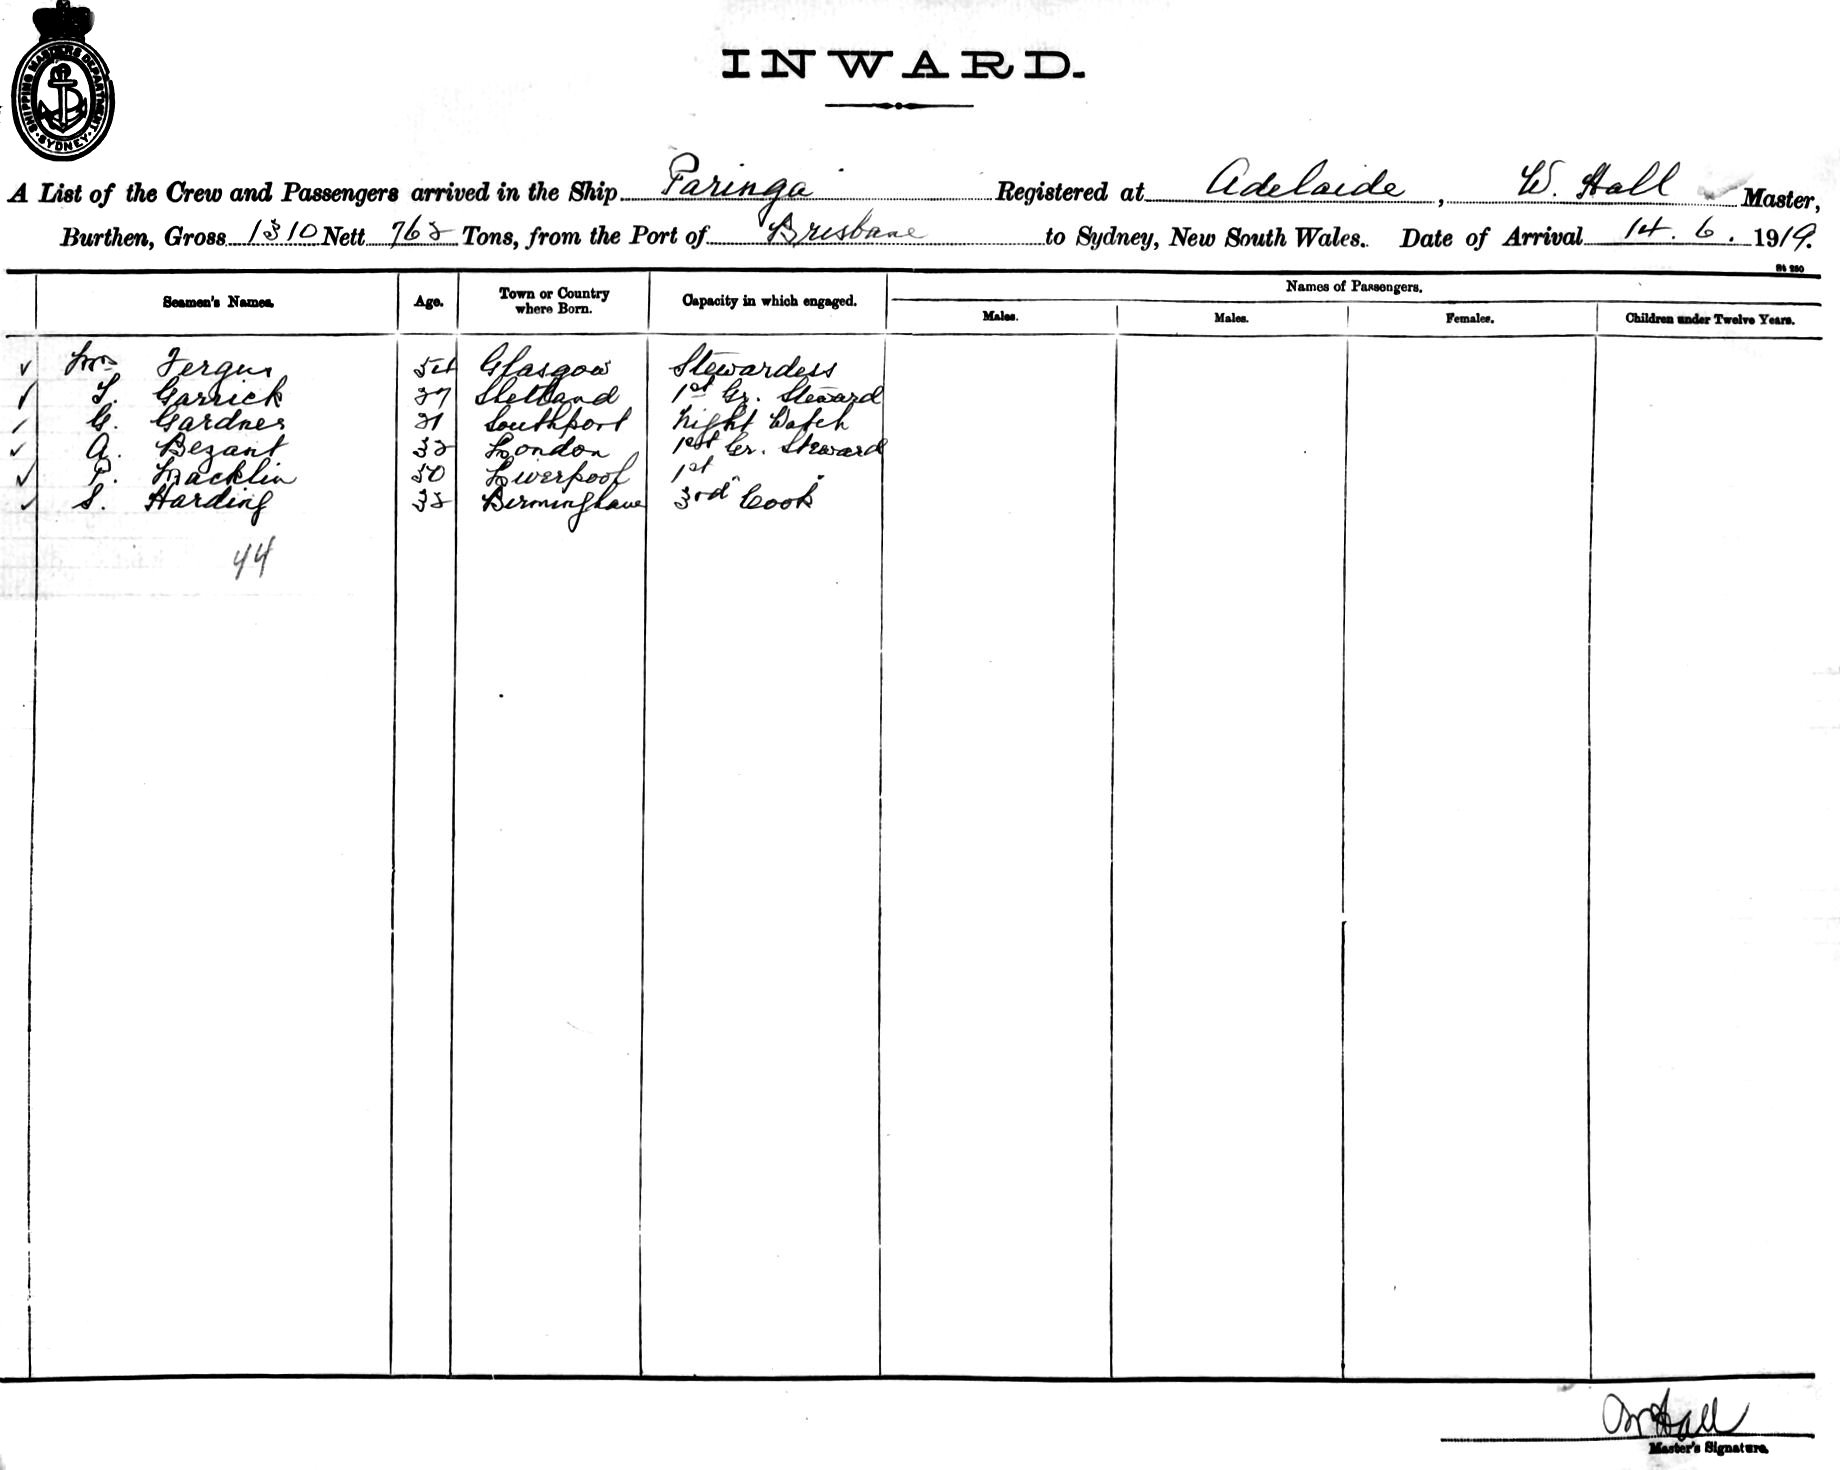 SHIPPING MASTERS DEPARTMENT · SYDNEY ·
INWARD.
A List of the Crew and Passengers arrived in the Ship Paringa Registered at Adelaide, W. Hall Master,
Burthen, Gross 1310 Nett 762 Tons, from the Port of Brisbane to Sydney, New South Wales. Date of Arrival 14. 6. 1919.
St 250
Seamen's Names. Age. Town or Country where Born. Capacity in which engaged. Names of Passengers.
Males. Males. Females. Children under Twelve Years.
✓ Mrs Fergus 54 Glasgow Stewardess
✓ T. Garrick 27 Shetland 1st Gr. Steward
✓ G. Gardner 21 Southport Night Watch
✓ A. Bezant 32 London 1st Gr. Steward
✓ P. Macklin 50 Liverpool 1st " "
✓ S. Harding 32 Birmingham 3rd Cook
44
W Hall
Master's Signature.